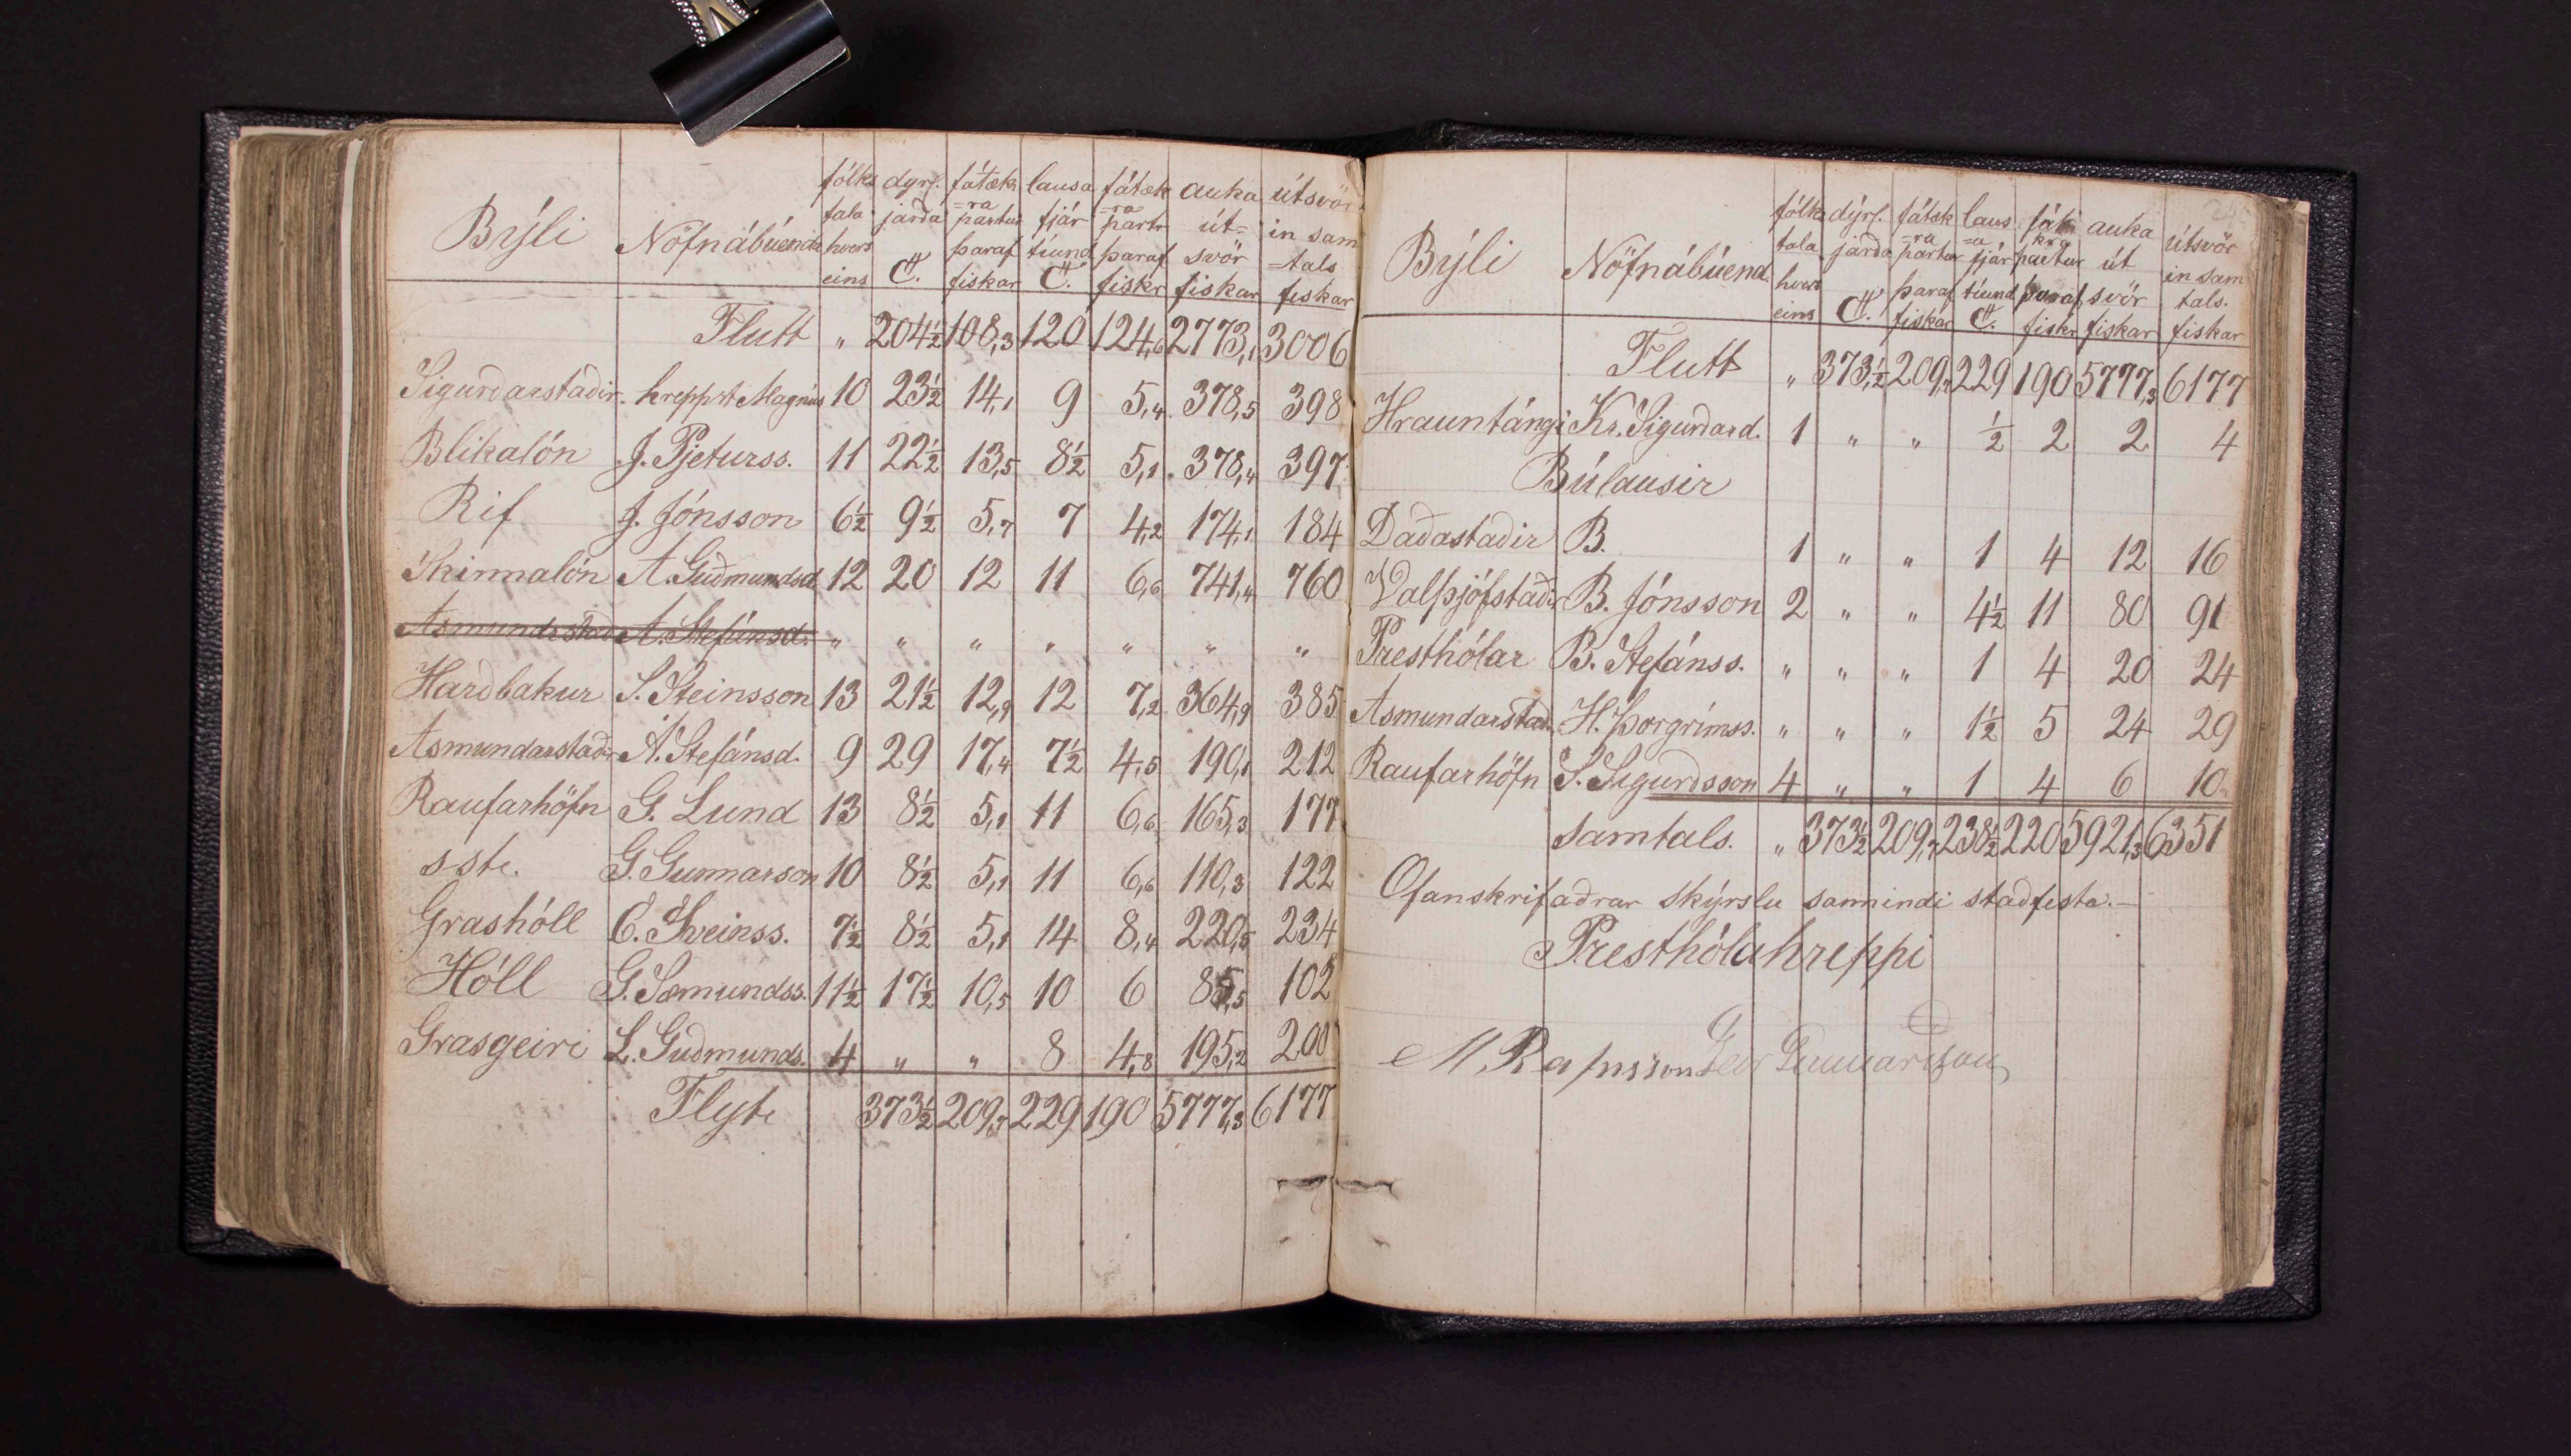 Býli Nöfnábúenda fólks tala hvers eins dýrl. jarða C. fátæk =ra partur þaraf fiskar lausa fjár tíund C. fátæk =ra partr þaraf fiskr auka út= svör fiskar útsvör in sam =tals fiskar
Flutt " 204½ 108,3 120 124,6 2773,1 3006
Sigurðarstaðir hreppst Magnús 10 23½ 14,1 9 5,4 378,5 398
Blikalón J. Pjeturss. 11 22½ 13,5 8½ 5,1 378,4 397
Rif J. Jónsson 6½ 9½ 5,7 7 4,2 174,1 184
Skinnalón A. Guðmundsd 12 20 12 11 6,6 741,4 760
Asmundsstað A. Stefánsd. " " " " " " "
Harðbakur S. Steinsson 13 21½ 12,9 12 7,2 364,9 385
Asmundarstaðir A. Stefánsd. 9 29 17,4 7½ 4,5 190,1 212
Raufarhöfn G. Lund 13 8½ 5,1 11 6,6 165,3 177
s. st. G. Gunnarson 10 8½ 5,1 11 6,6 110,3 122
Grashóll E. Sveinss. 7½ 8½ 5,1 14 8,4 220,5 234
Hóll G. Sæmundss. 11½ 17½ 10,5 10 6 85,5 102
Grasgeiri L. Guðmunds. 4 " " 8 4,8 195,2 200
Flyt 373½ 209,7 229 190 5777,3 6177
Býli Nöfnábúend fólks tala hvers eins dýrl. jarða C. fátæk =ra partur þaraf fiskar laus =a fjár tíund C. fátæ kra partur þaraf fiskr auka út svör fiskar útsvör in sam tals. fiskar
Flutt " 373,½ 209,7 229 190 5777,3 6177
Hrauntángi Kr. Sigurðard. 1 " " ½ 2 2 4
Búlausir
Daðastaðir B. 1 " " 1 4 12 16
Valþjófstaðir B. Jónsson 2 " " 4½ 11 80 91
Presthólar B. Stefánss. " " " 1 4 20 24
Asmundarstað. H. Þorgrímss. " " " 1½ 5 24 29
Raufarhöfn S. Sigurðsson 4 " " 1 4 6 10
Samtals. " 373½ 209,7 238½ 220 5921,3 6351
Ofanskrifaðrar skýrslu sannindi staðfesta.
Presthólahreppi
M. Rafnsson Geir Gunnarsson